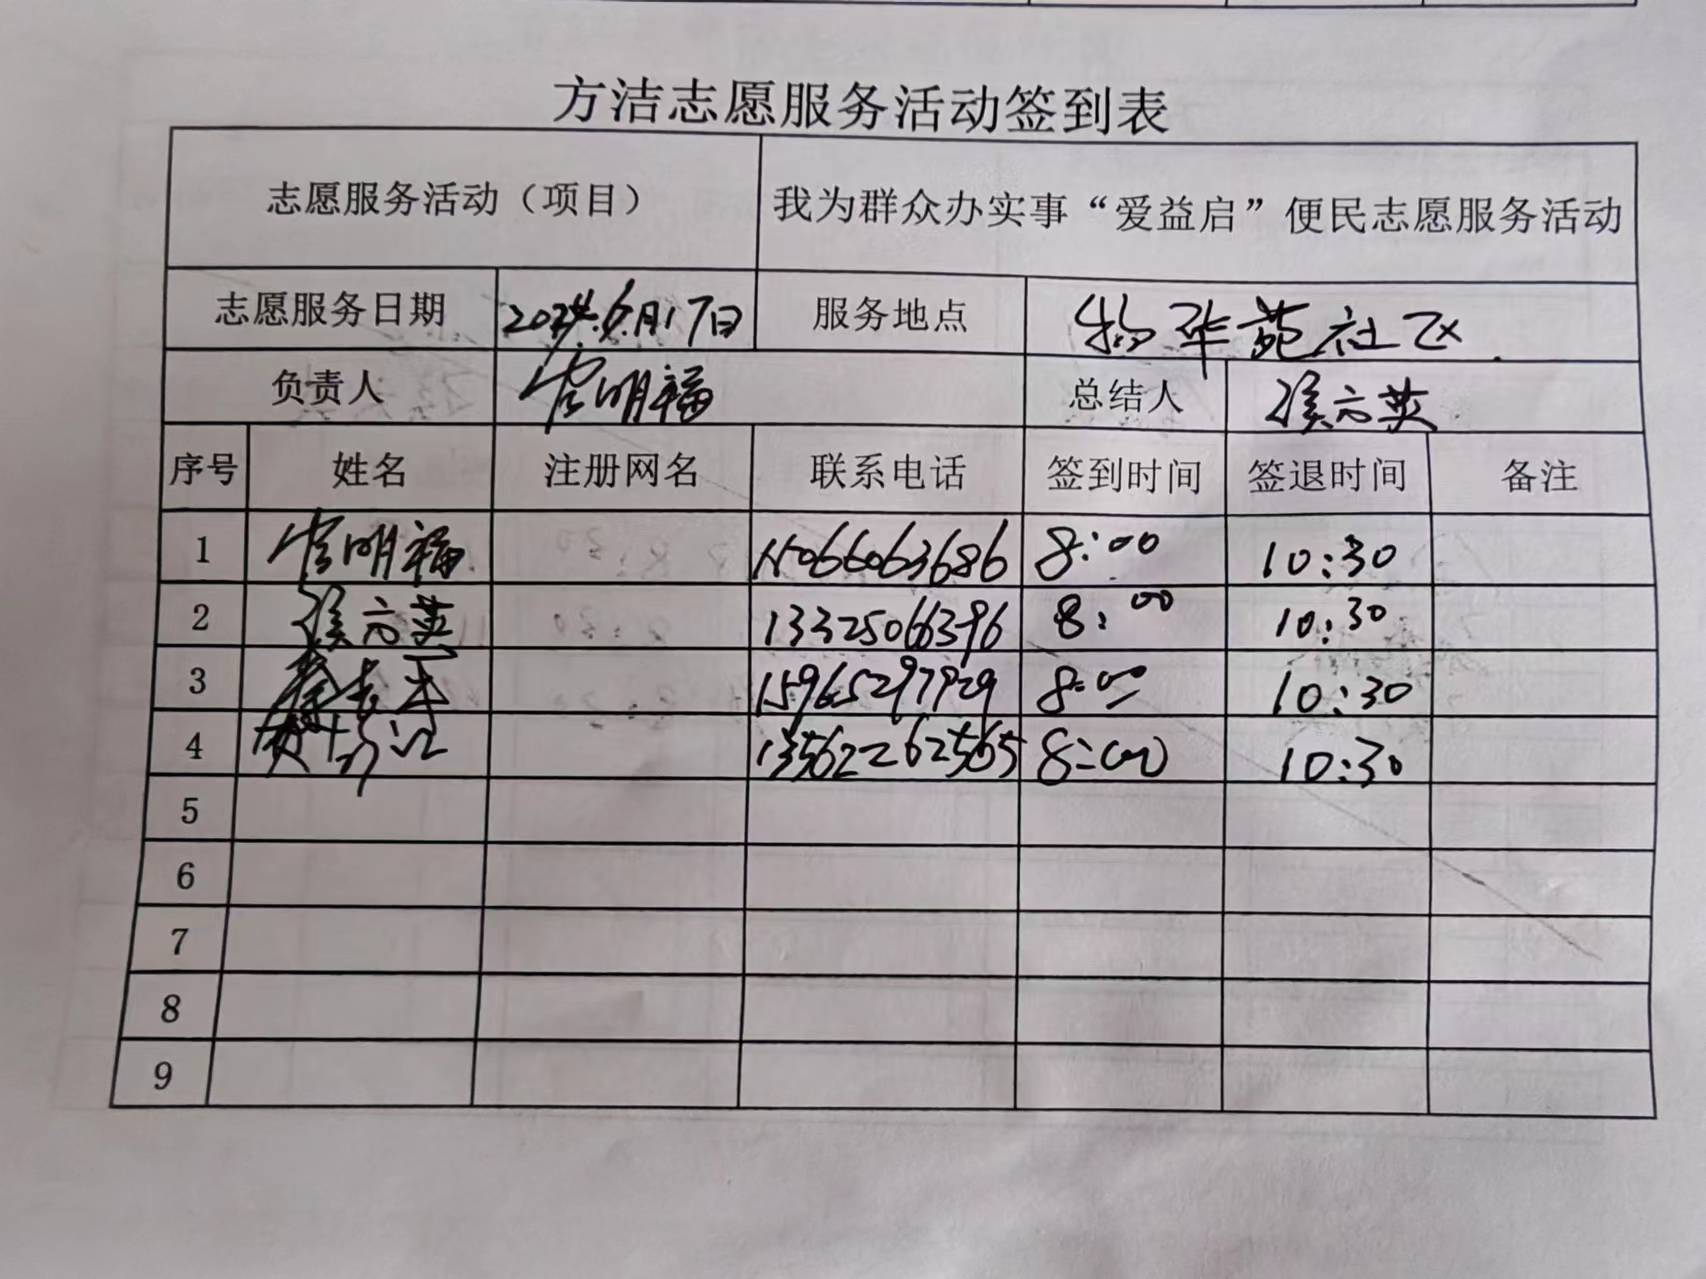 方洁志愿服务活动签到表
志愿服务活动（项目） 我为群众办实事“爱益启”便民志愿服务活动
志愿服务日期 2024.6月17日 服务地点 物华苑社区
负责人 官明福 总结人 侯六英
序号 姓名 注册网名 联系电话 签到时间 签退时间 备注
1 官明福 15066063686 8:00 10:30
2 侯六英 13325066396 8:00 10:30
3 15965297929 8:00 10:30
4 13562262565 8:00 10:30
5
6
7
8
9